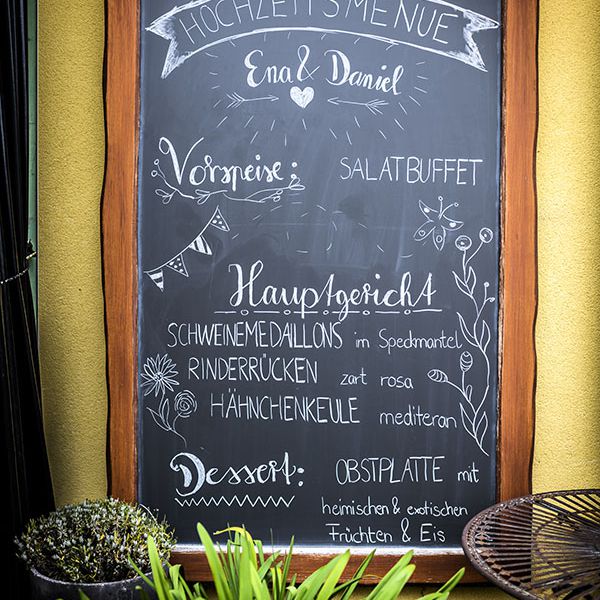 HOCHZEITSMENUE
Ena & Daniel
Vorspeise: SALATBUFFET
Hauptgericht
SCHWEINEMEDAILLONS im Speckmantel
RINDERRÜCKEN zart rosa
HÄHNCHENKEULE mediteran
Dessert: OBSTPLATTE mit
heimischen & exotischen
Früchten & Eis